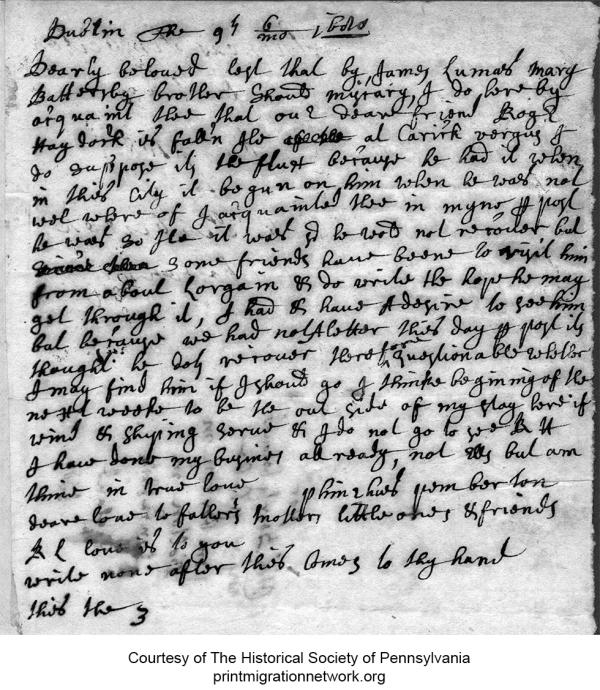 Dublin the 9th 6/mo
Dearly beloved lest that by James Lumas mary
Battersby brother should myscary, I do here by
acquaint thee that our deare friend Rogr
Haydock is falln Ile at Carick vergus I
do suppose its the flux because he had it when
in thies City it begun on him when he was not
wel where of I acquainted thee in myne p post
he was so Ile it was sd he wold not recover but
some friends have beene to visit him
from about Lorgain & do write the hope he may
get through it, I had & have A desire to see him
but because we had letter thies day p post its
thought he doth recover therefore questionable whether
I may find him if I should go I thinke begining of the
next weeke to be the out side of my stay here if
wind & shiping serve & I do not go to see R H
I have done my busines allready, not els but am
thine in true love pemberton
deare love to fathers mothers little ones & friends
R L love is to you
write none after thies Comes to thy hand
thies the 3
Courtesy of The Historical Society of Pennsylvania
printmigrationnetwork.org